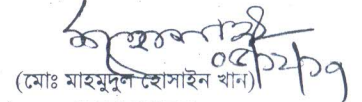 ০৫/১২/১৭
(মোঃ মাহমুদুল হোসাইন খান)